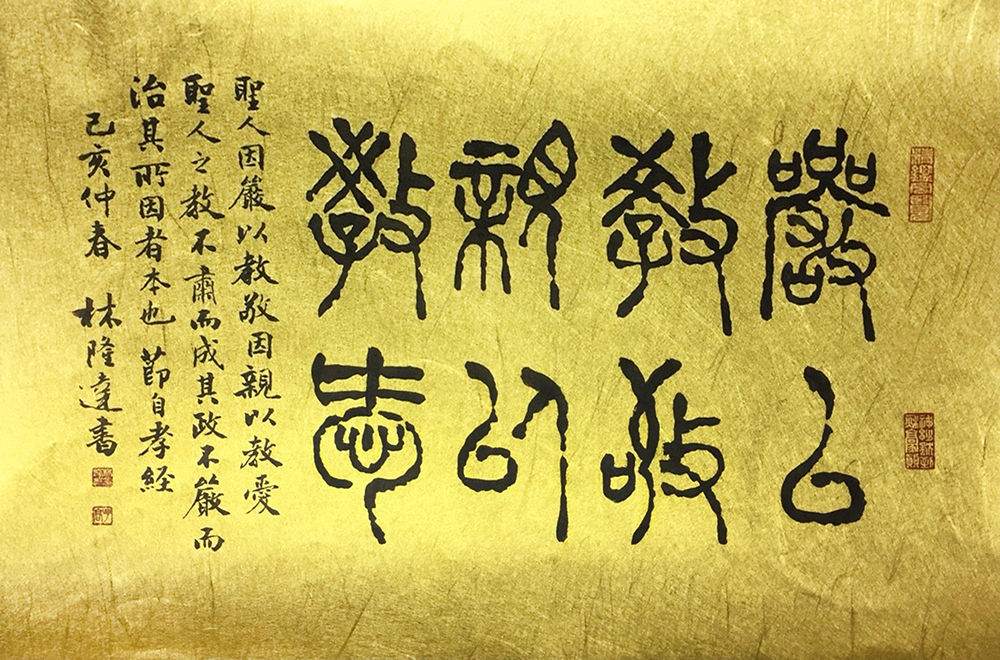 嚴以
教敬
親以
教愛
聖人因嚴以教敬因親以教愛
聖人之教不肅而成其政不嚴而
治其所因者本也 節自孝経
己亥仲春 林隆達書